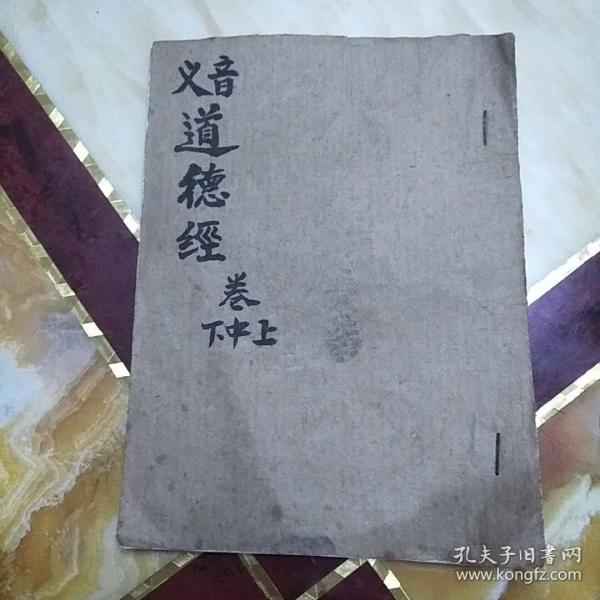 音义
道德經
卷
上中下
孔夫子旧書网
www.kongfz.com